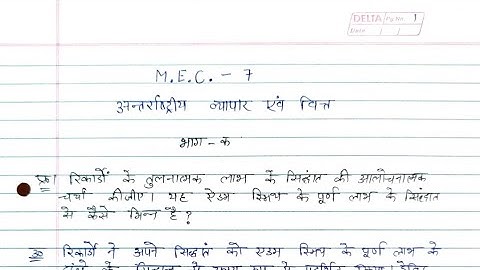 DELTA Pg No. 1
Date / /
M.E.C. - 7
अन्तर्राष्ट्रीय व्यापार एवं वित्त
भाग - क
प्र०1 रिकार्डो के तुलनात्मक लाभ के सिद्धांत की आलोचनात्मक
चर्चा कीजीए। यह ऐडम स्मिथ के पूर्ण लाभ के सिद्धांत
से कैसे भिन्न है?
उ० रिकार्डो ने अपने सिद्धांत को एडम स्मिथ के पूर्ण लाभ के